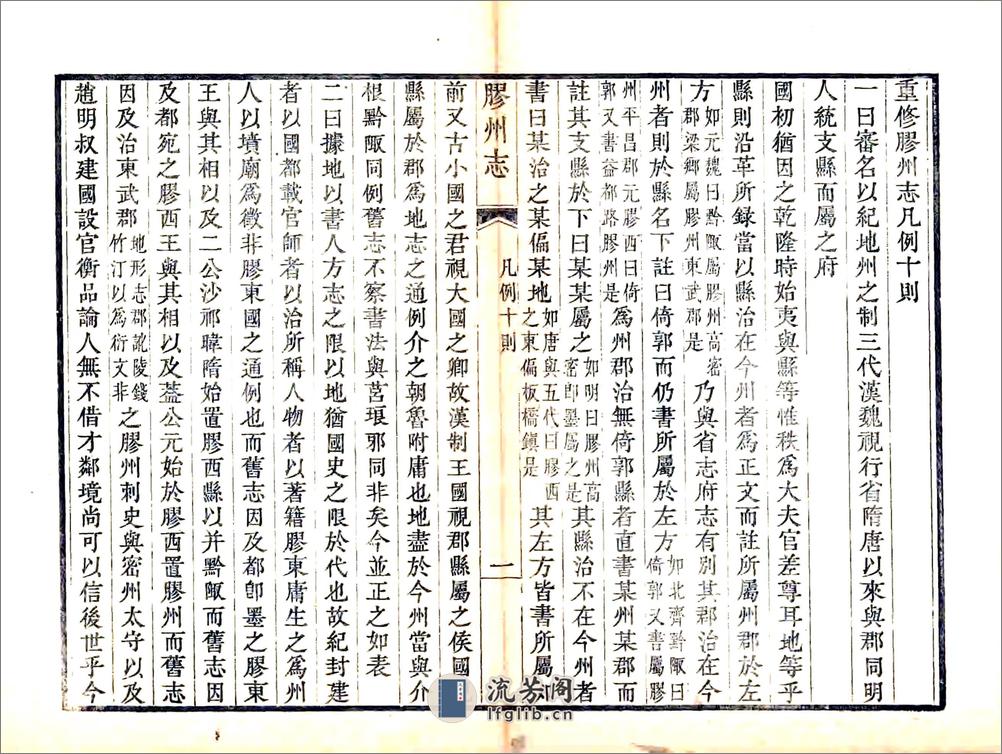 重修膠州志凡例十則
一曰審名以紀地州之制三代漢魏視行省隋唐以來與郡同明
人統支縣而屬之府
國初猶因之乾隆時始夷與縣等惟秩爲大夫官差尊耳地等乎
縣則沿革所録當以縣治在今州者爲正文而註所屬州郡於左
方如元魏曰黔陬屬膠州高密郡梁鄉屬膠州東武郡是乃與省志府志有別其郡治在今
州者則於縣名下註曰倚郭而仍書所屬於左方如北齊黔陬曰倚郭又書屬膠
州平昌郡元膠西曰倚郭又書益都路膠州是爲州郡治無倚郭縣者直書某州某郡而
註其支縣於下曰某某屬之如明曰膠州高密卽墨屬之是其縣治不在今州者
書曰某治之某偏某地如唐與五代曰膠西之東偏板橋鎮是其左方皆書所屬如
膠州志
凡例十則
一
前又古小國之君視大國之卿故漢制王國視郡縣屬之侯國視
縣屬於郡爲地志之通例介之朝魯附庸也地盡於今州當與介
根黔陬同例舊志不察書法與莒琅邪同非矣今並正之如表
二曰據地以書人方志之限以地猶國史之限於代也故紀封建
者以國都載官師者以治所稱人物者以著籍膠東庸生之爲州
人以墳廟爲徵非膠東國之通例也而舊志因及都卽墨之膠東
王與其相以及二公沙祁暐隋始置膠西縣以并黔陬而舊志因
及都宛之膠西王與其相以及葢公元始於膠西置膠州而舊志
因及治東武郡地形志郡訛陵錢竹汀以爲衍文非之膠州刺史與密州太守以及
趙明叔建國設官衡品論人無不借才鄰境尚可以信後世乎今
流芳阁
lfglib.cn